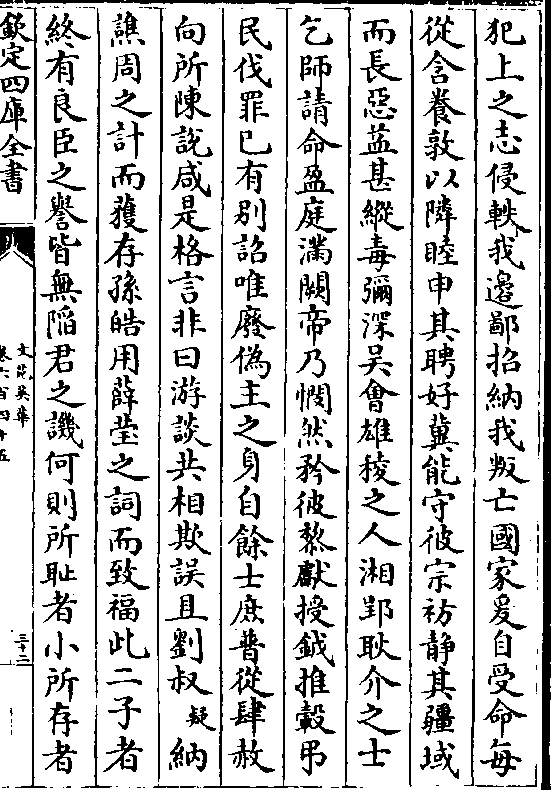 犯上之志侵軼我邉鄙招納我叛亡國家爰自受命毎
從含養敦以隣睦申其聘好冀能守彼宗祊静其疆域
而長惡益甚縱毒彌深吳會雄稜之人湘郢耿介之士
乞師請命盈庭滿闕帝乃憫然矜彼黎獻授鉞推轂弔
民伐罪已有别詔唯廢偽主之身自餘士庶普從肆赦
向所陳說咸是格言非曰游談共相欺誤且劉叔疑納
譙周之計而獲存孫皓用薛瑩之詞而致福此二子者
終有良臣之譽皆無陷君之譏何則所耻者小所存者
欽定四庫全書
文苑英華
卷六百四十五
三十二